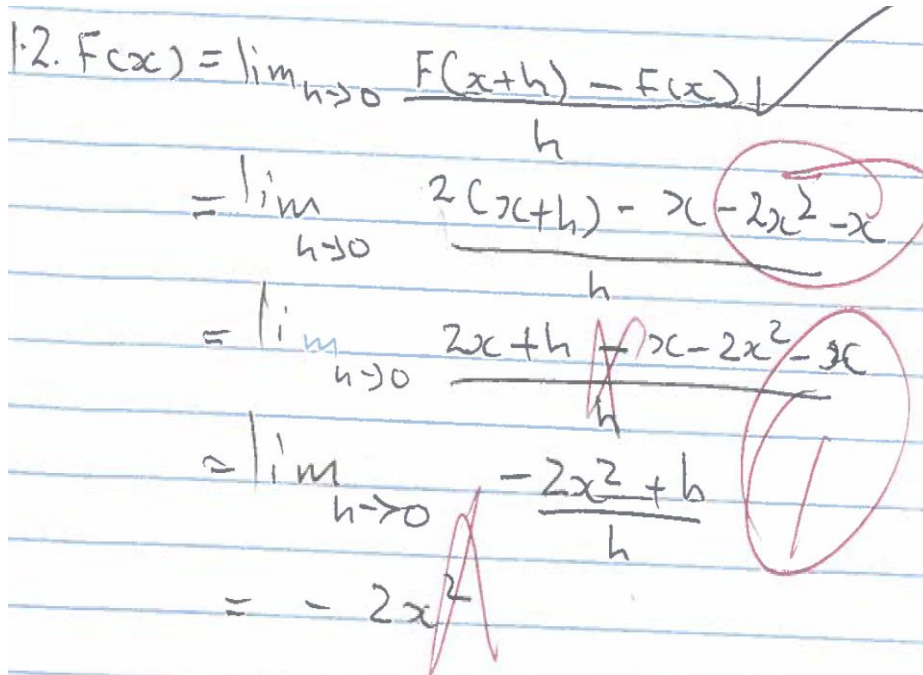 1.2. F(x) = lim h→0 F(x+h) - F(x) / h
= lim h→0 2(x+h) - x - 2x² - x / h
= lim h→0 2x + h - x - 2x² - x / h
= lim h→0 -2x² + h / h
= - 2x²